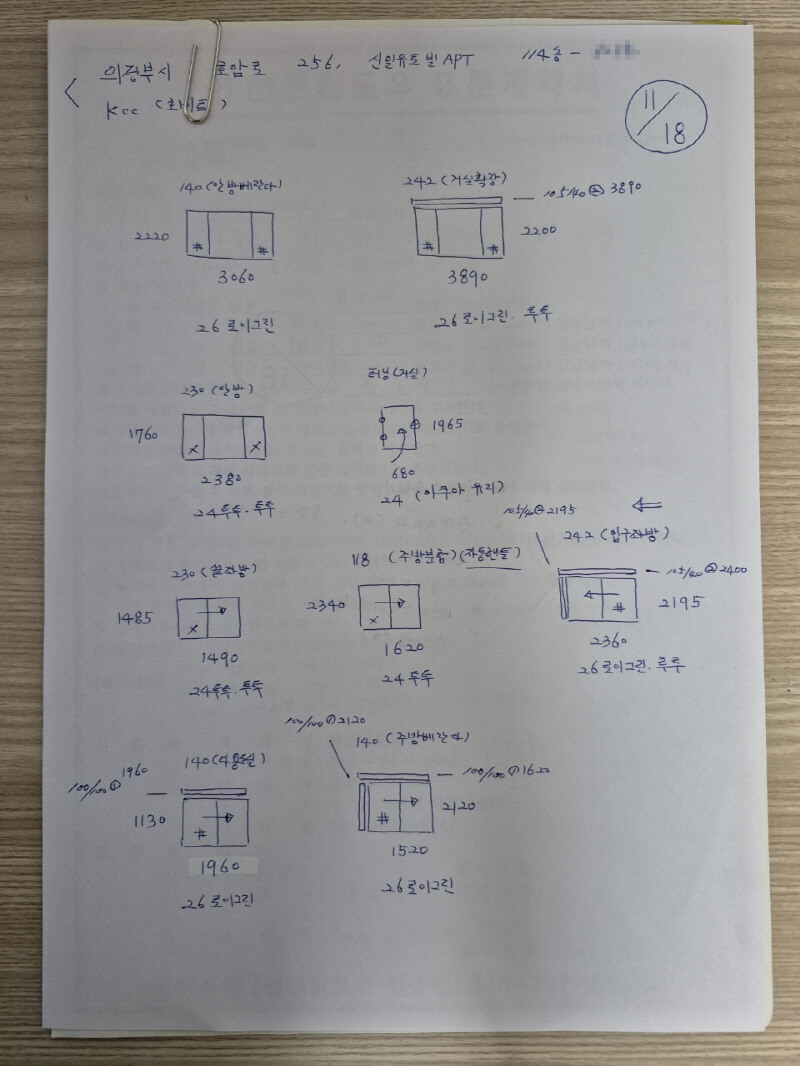 의정부시 로암로 256, 신일유토빌APT 114동 -
KCC (화이트)
11/18
140 (안방베란다)
2220
#
#
3060
26 로이그린
242 (거실확장)
105/40 ② 3890
#
#
2200
3890
26 로이그린. 투투
230 (안방)
1760
X
X
2380
24투투. 투투
터닝(거실)
1965
680
24 (아쿠아 유리)
230 (쪽좌방)
1485
X
1490
24투투. 투투
118 (주방분합) (자동핸들)
2340
X
1620
24 투투
105/40 ② 2195
242 (입구좌방)
105/40 ② 2400
#
2195
2360
26 로이그린. 투투
140 (다용도실)
100/100 ① 1960
1130
#
1960
26 로이그린
100/100 ① 2120
140 (주방베란다)
100/100 ① 1620
#
2120
1520
26 로이그린